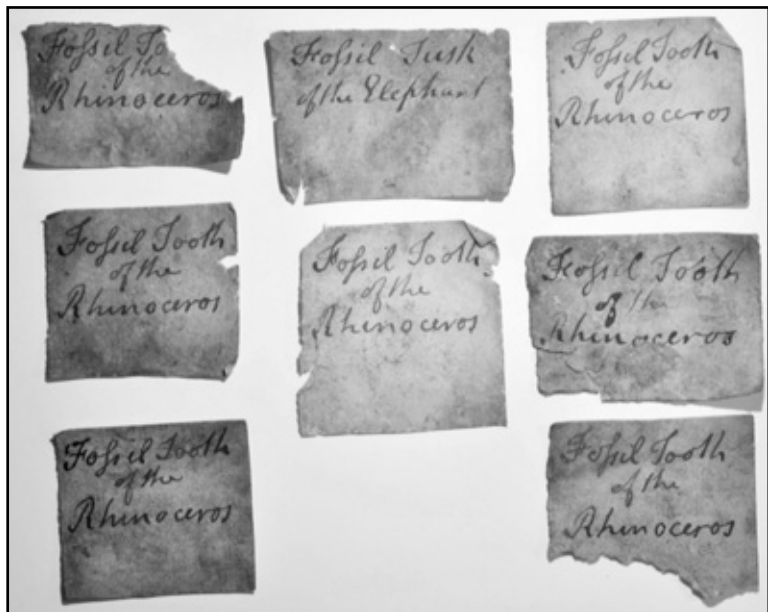 Foſsil To
of the
Rhinoceros
Foſsil Tusk
of the Elephant
Foſsil Tooth
of the
Rhinoceros
Foſsil Tooth
of the
Rhinoceros
Foſsil Tooth
of the
Rhinoceros
Foſsil Tooth
of the
Rhinoceros
Foſsil Tooth
of the
Rhinoceros
Foſsil Tooth
of the
Rhinoceros